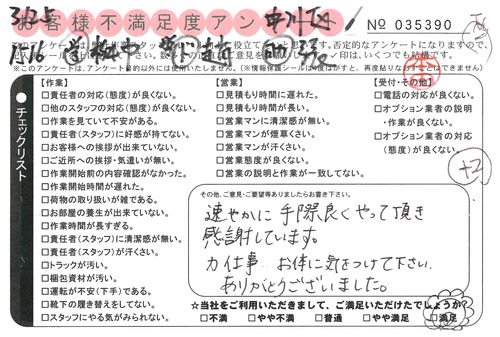 お客様不満足度アンケート
№ 035390
【作業】
□責任者の対応(態度)が良くない。
□他のスタッフの対応(態度)が良くない。
□作業を見ていて不安がある。
□責任者(スタッフ)に好感が持てない。
□お客様への挨拶が出来ていない。
□ご近所への挨拶・気遣いが無い。
□作業開始前の内容確認がなかった。
□作業開始時間が遅れた。
□荷物の取り扱いが雑である。
□お部屋の養生が出来ていない。
□作業時間が長すぎる。
□責任者(スタッフ)に清潔感が無い。
□責任者(スタッフ)が汗くさい。
□トラックが汚い。
□梱包資材が汚い。
□運転が不安(下手)である。
□靴下の履き替えをしてない。
□スタッフにやる気がみられない。
チェックリスト
【営業】
□見積もり時間に遅れた。
□見積もり時間が長い。
□営業マンに清潔感が無い。
□営業マンが煙草くさい。
□営業マンが汗くさい。
□営業態度が良くない。
□営業の説明と作業が一致してない。
【受付・その他】
□電話の対応が良くない。
□オプション業者の説明
・作業が良くない。
□オプション業者の対応
(態度)が良くない。
+2
その他、ご意見・ご要望等ありましたらお書き下さい。
速やかに手際良くやって頂き
感謝しています。
力仕事 お体に気をつけて下さい。
ありがとうございました。
☆当社をご利用いただきまして、ご満足いただけたでしょうか?
□不満 □やや不満 □普通 □やや満足 □満足